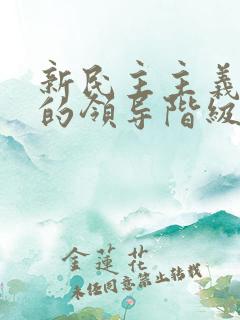 新民主主義
的領导階級
金蓮花
未经同意禁止转载